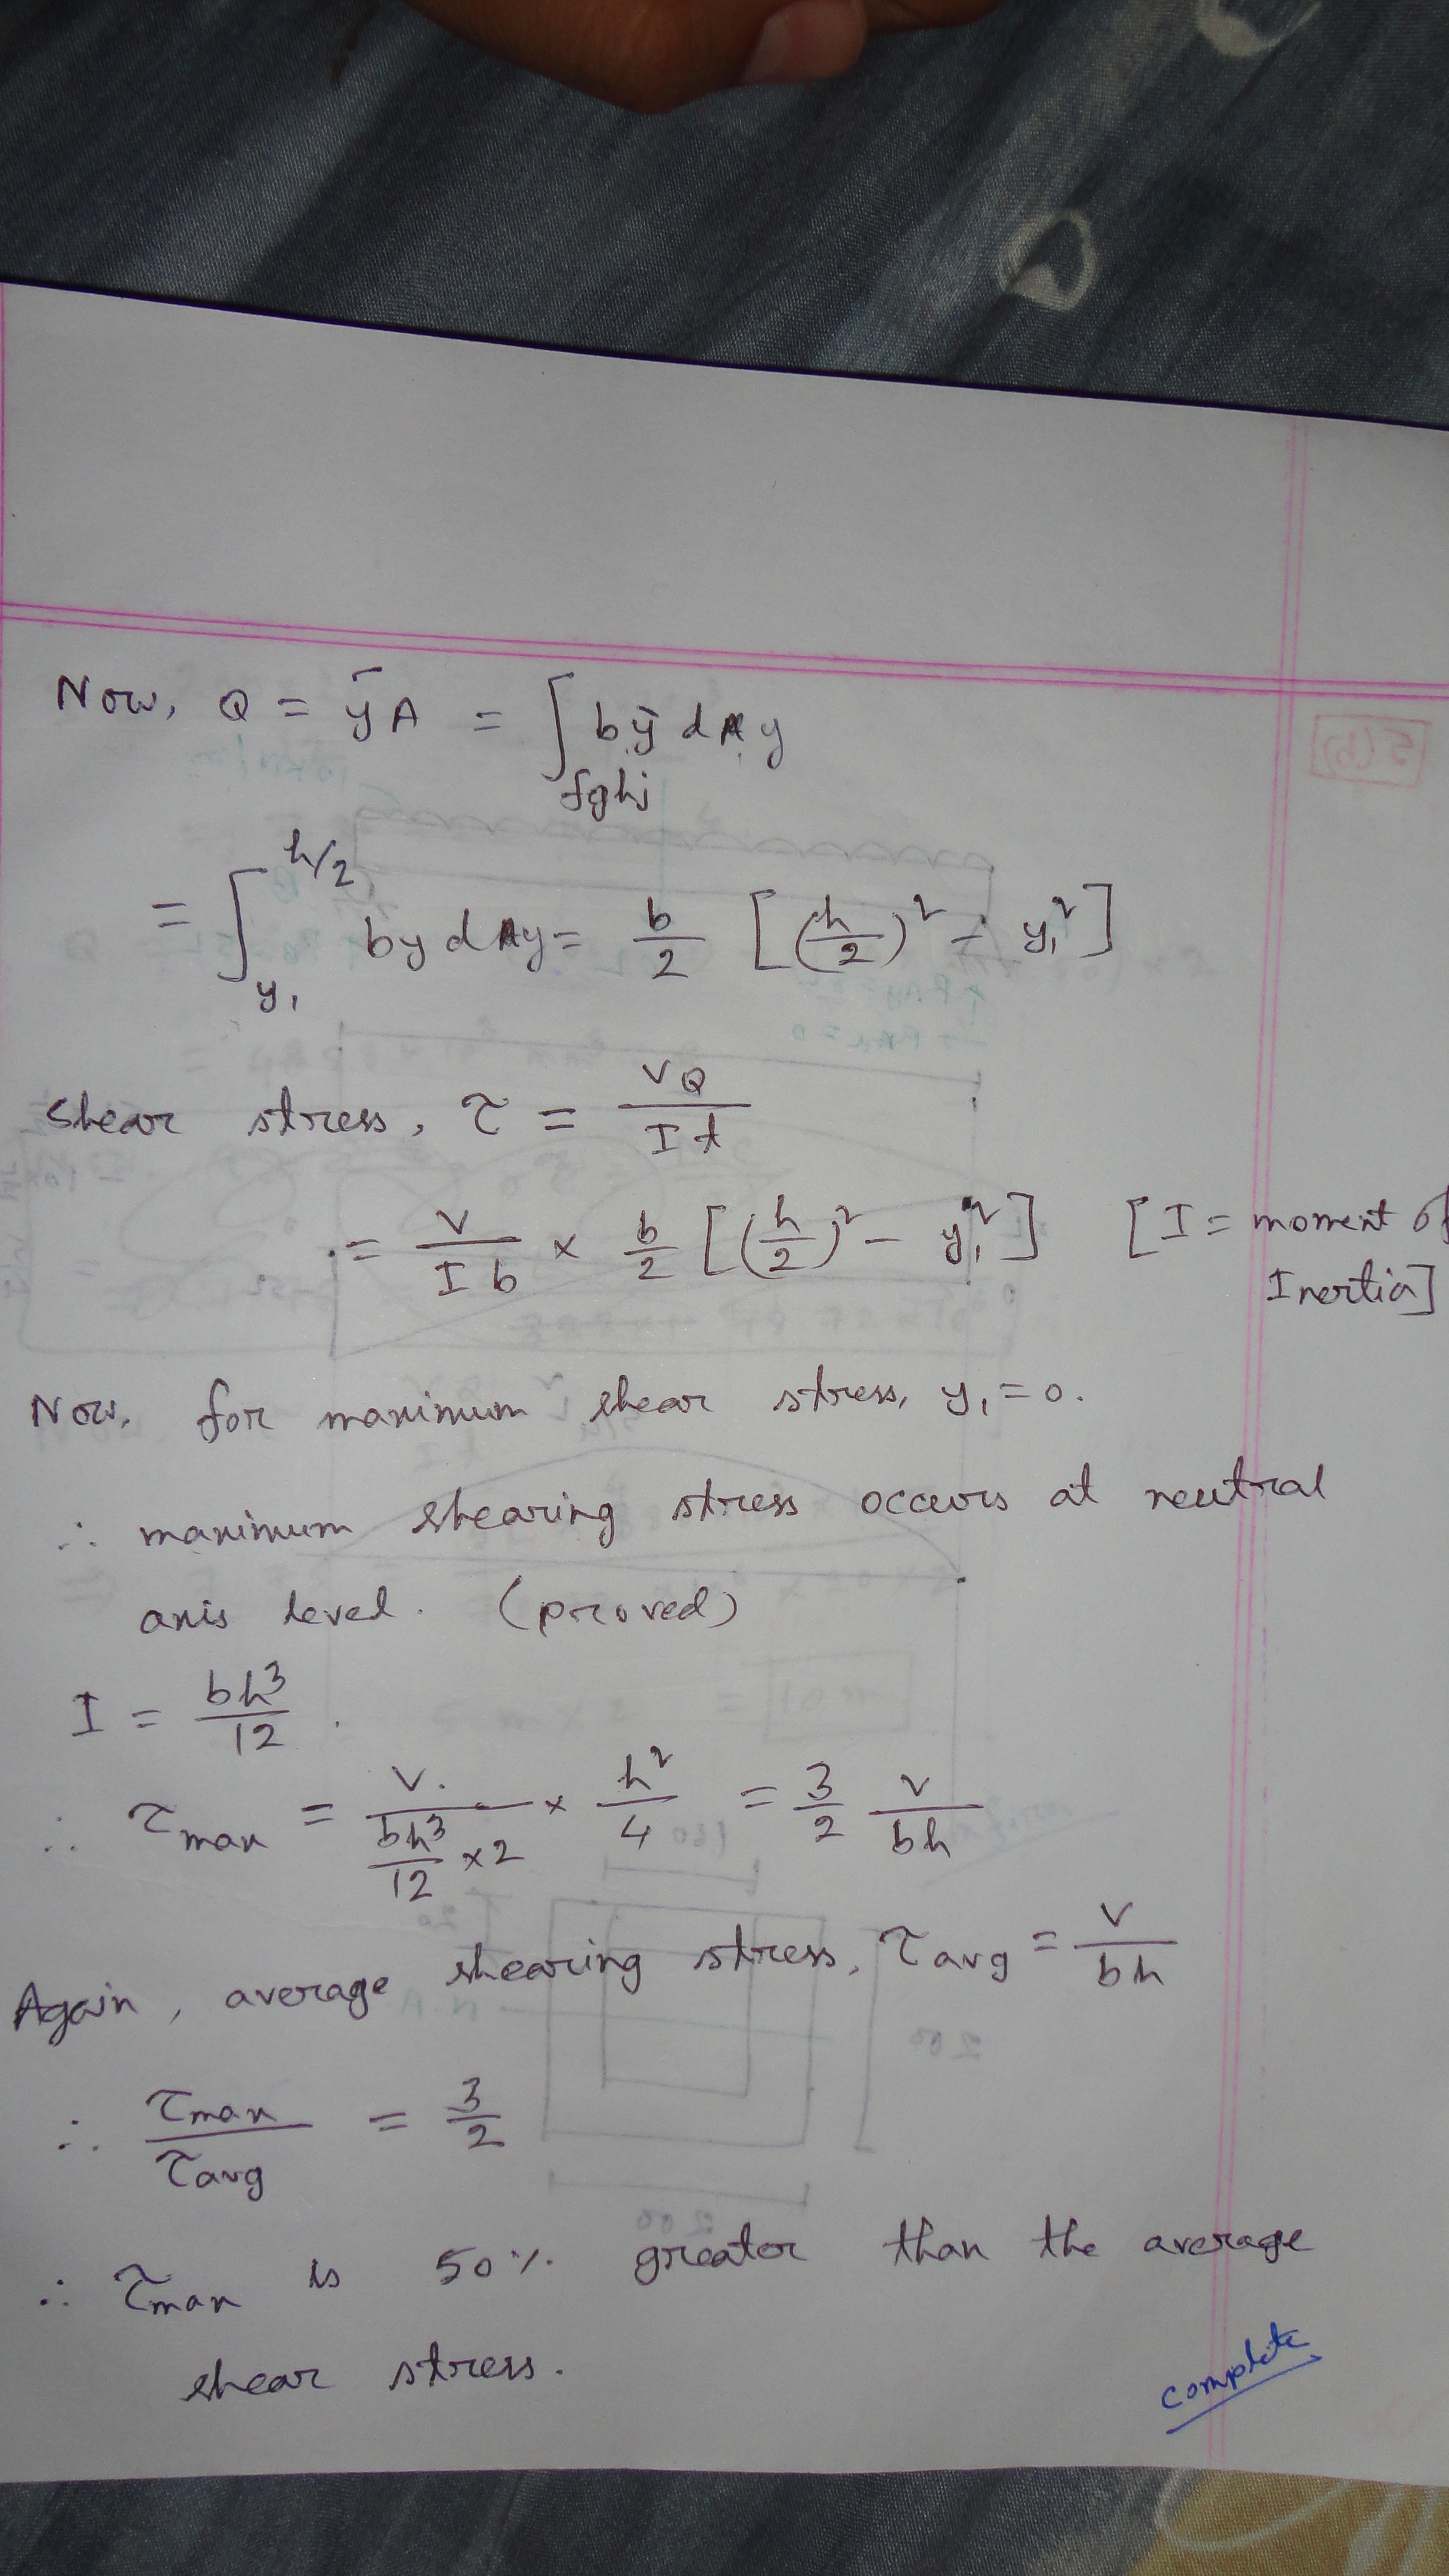 Now, Q = ȳA = ∫fghj by dy
= ∫y₁^h/2 by dy = b/2 [(h/2)² − y₁²]
Shear stress, τ = VQ/It
= V/Ib × b/2 [(h/2)² − y₁²] [I = moment of
Inertia]
Now, for maximum shear stress, y₁ = 0.
∴ maximum shearing stress occurs at neutral
axis level. (proved)
I = bh³/12.
∴ τmax = V/(bh³/12 × 2) × h²/4 = 3/2 V/bh
Again, average shearing stress, τavg = V/bh
∴ τmax/τavg = 3/2
∴ τmax is 50% greater than the average
shear stress.
complete